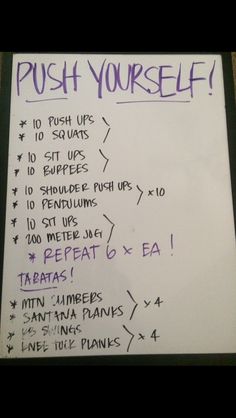 PUSH YOURSELF!
* 10 PUSH UPS
* 10 SQUATS
* 10 SIT UPS
* 10 BURPEES
* 10 SHOULDER PUSH UPS
* 10 PENDULUMS × 10
* 10 SIT UPS
* 200 METER JOG
* REPEAT 6 × EA!
TABATAS!
* MTN CLIMBERS
* SANTANA PLANKS × 4
* KB SWINGS
* KNEE TUCK PLANKS × 4